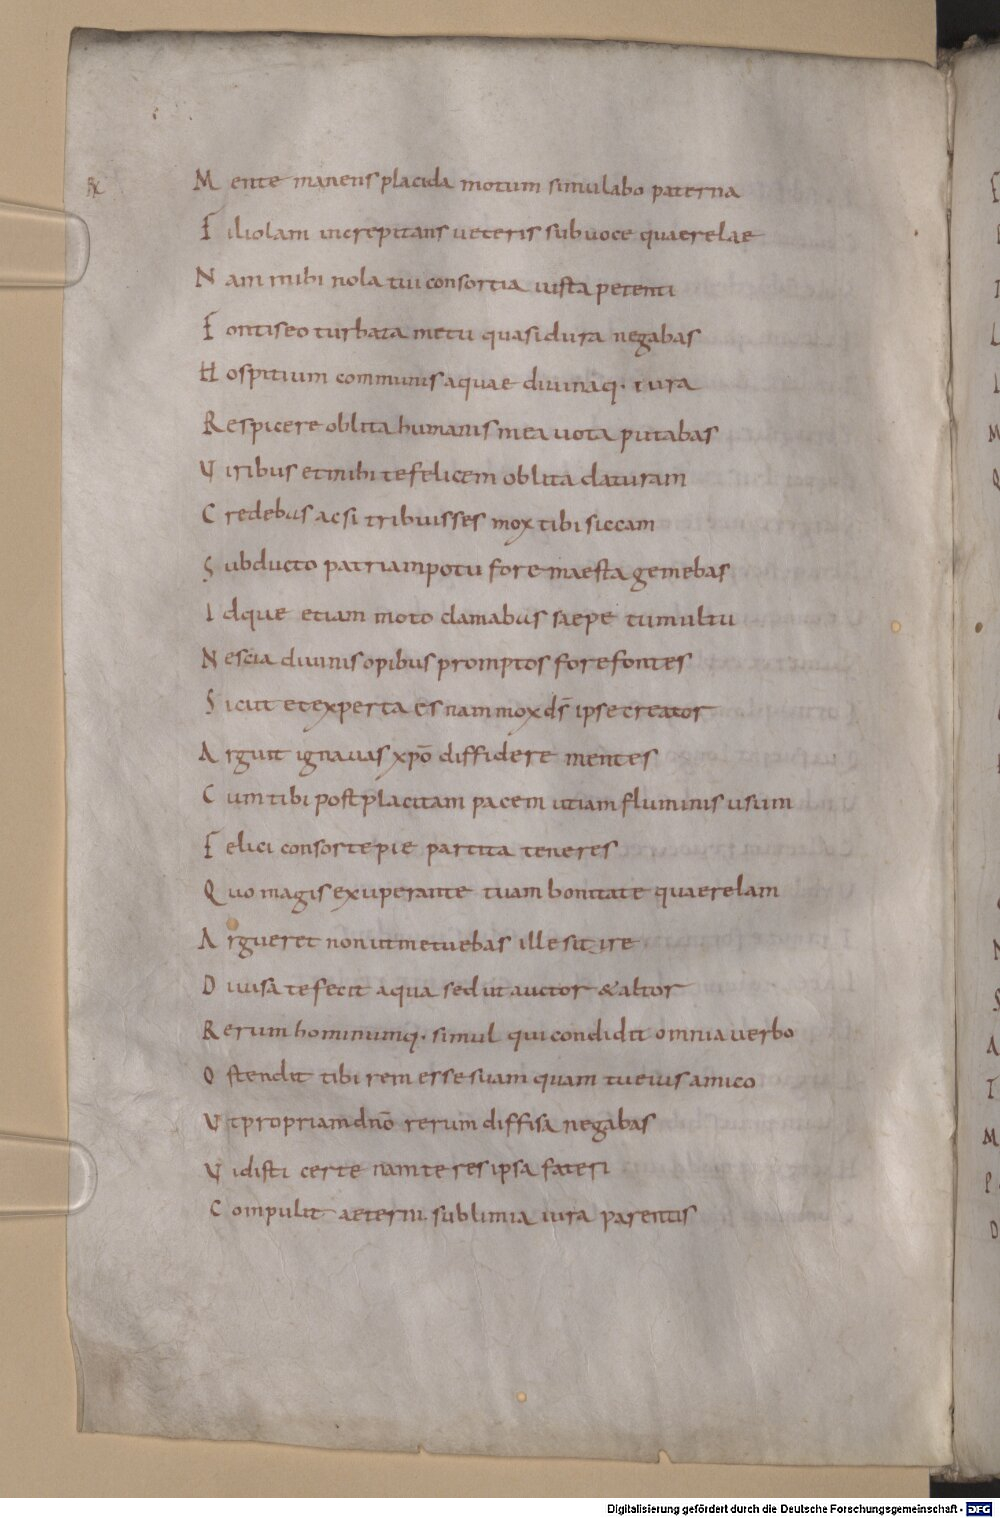 Mente manens placida motum simulabo paterna
Filiolam increpitans veteris sub voce quaerelae
Nam mihi nola tui consortia iusta petenti
Fontis eo turbata metu quasi dura negabas
Hospitium communis aquae divinaq. iura
Respicere oblita humanis mea vota putabas
Viribus et mihi te felicem oblita daturam
Credebas ac si tribuisses mox tibi siccam
Subducto patriam potu fore maesta gemebas
Idque etiam moto clamabas saepe tumultu
Nescia divinis opibus promptos fore fontes
Sicut et experta es nam mox ds̄ ipse creator
Arguit ignavas xpō diffidere mentes
Cum tibi post placitam pacem utiam fluminis usum
Felici consorte pie partita teneres
Quo magis exuperante tuam bonitate quaerelam
Argueret non ut metuebas ille sitire
Divisa te fecit aqua sed ut auctor & altor
Rerum hominumq. simul qui condidit omnia verbo
Ostendit tibi rem esse suam quam tu eius amico
Ut propriam dnō rerum diffisa negabas
Vidisti certe nam te res ipsa fateri
Compulit aeterni sublimia iura parentis
Digitalisierung gefördert durch die Deutsche Forschungsgemeinschaft - DFG